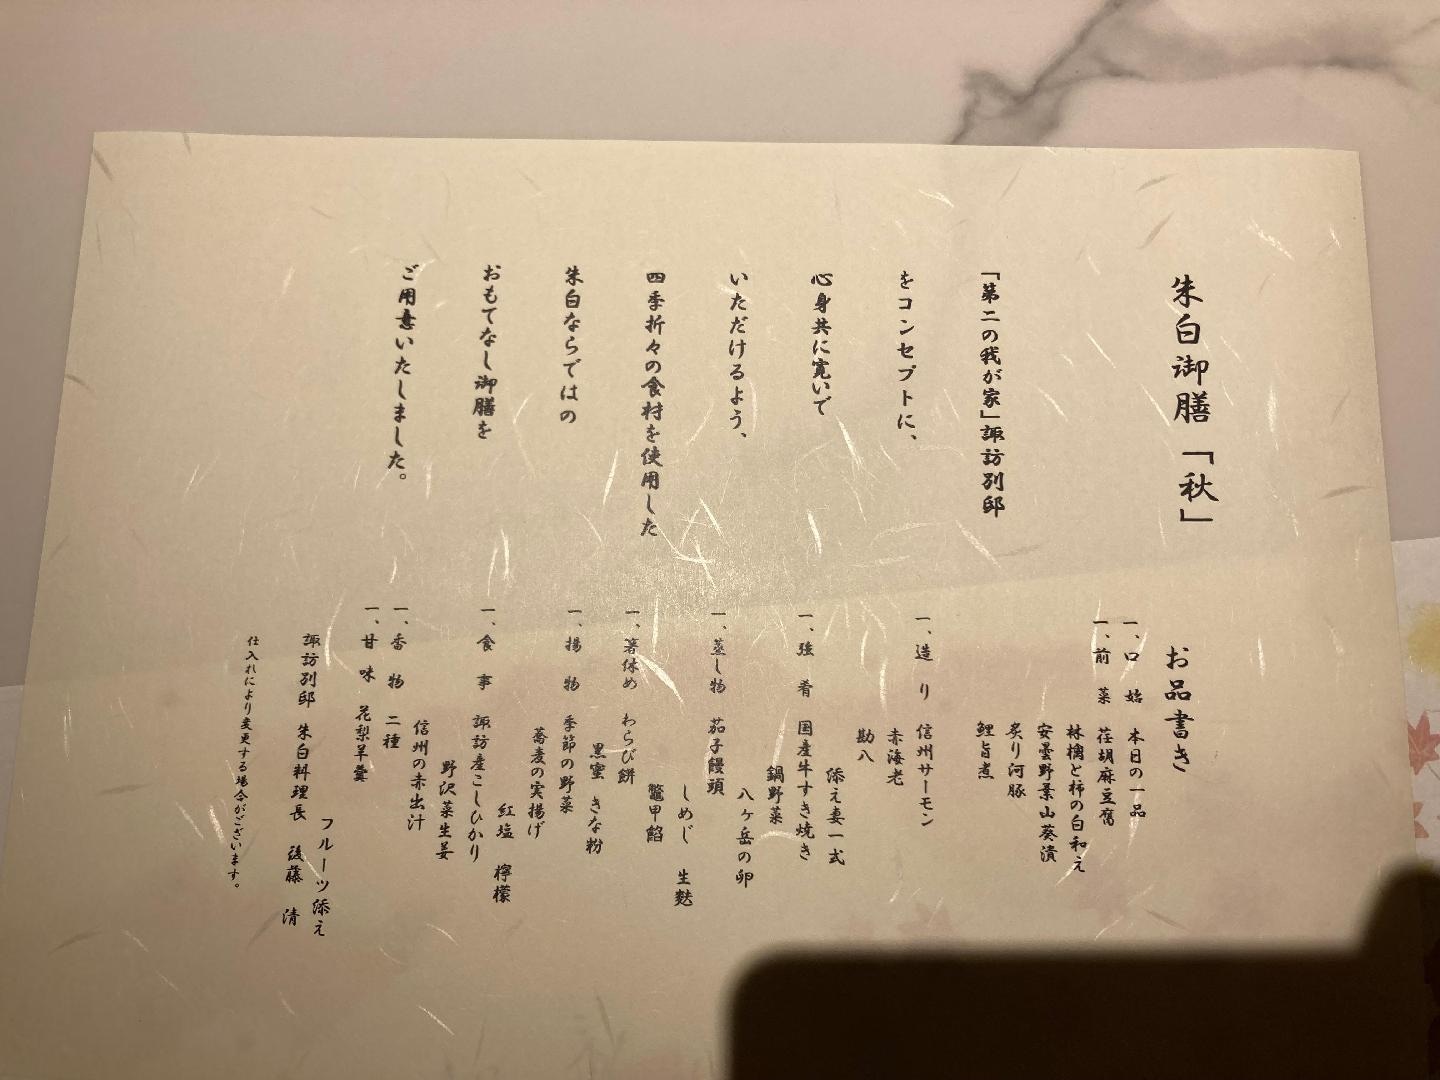 朱白御膳「秋」
「第二の我が家」諏訪別邸
をコンセプトに、
心身共に寛いで
いただけるよう、
四季折々の食材を使用した
朱白ならではの
おもてなし御膳を
ご用意いたしました。
お品書き
一、口 始 本日の一品
一、前 菜 荏胡麻豆腐
林檎と柿の白和え
安曇野葉山葵漬
炙り河豚
鯉旨煮
一、造 り 信州サーモン
赤海老
勘八
添え妻一式
一、強 肴 国産牛すき焼き
鍋野菜
八ヶ岳の卵
一、蒸し物 茄子饅頭
しめじ 生麩
鼈甲餡
一、箸休め わらび餅
黒蜜 きな粉
一、揚 物 季節の野菜
蕎麦の実揚げ
紅塩 檸檬
一、食 事 諏訪産こしひかり
野沢菜生姜
信州の赤出汁
一、香 物 二種
一、甘 味 花梨羊羹
フルーツ添え
諏訪別邸 朱白料理長 後藤 清
仕入れにより変更する場合がございます。